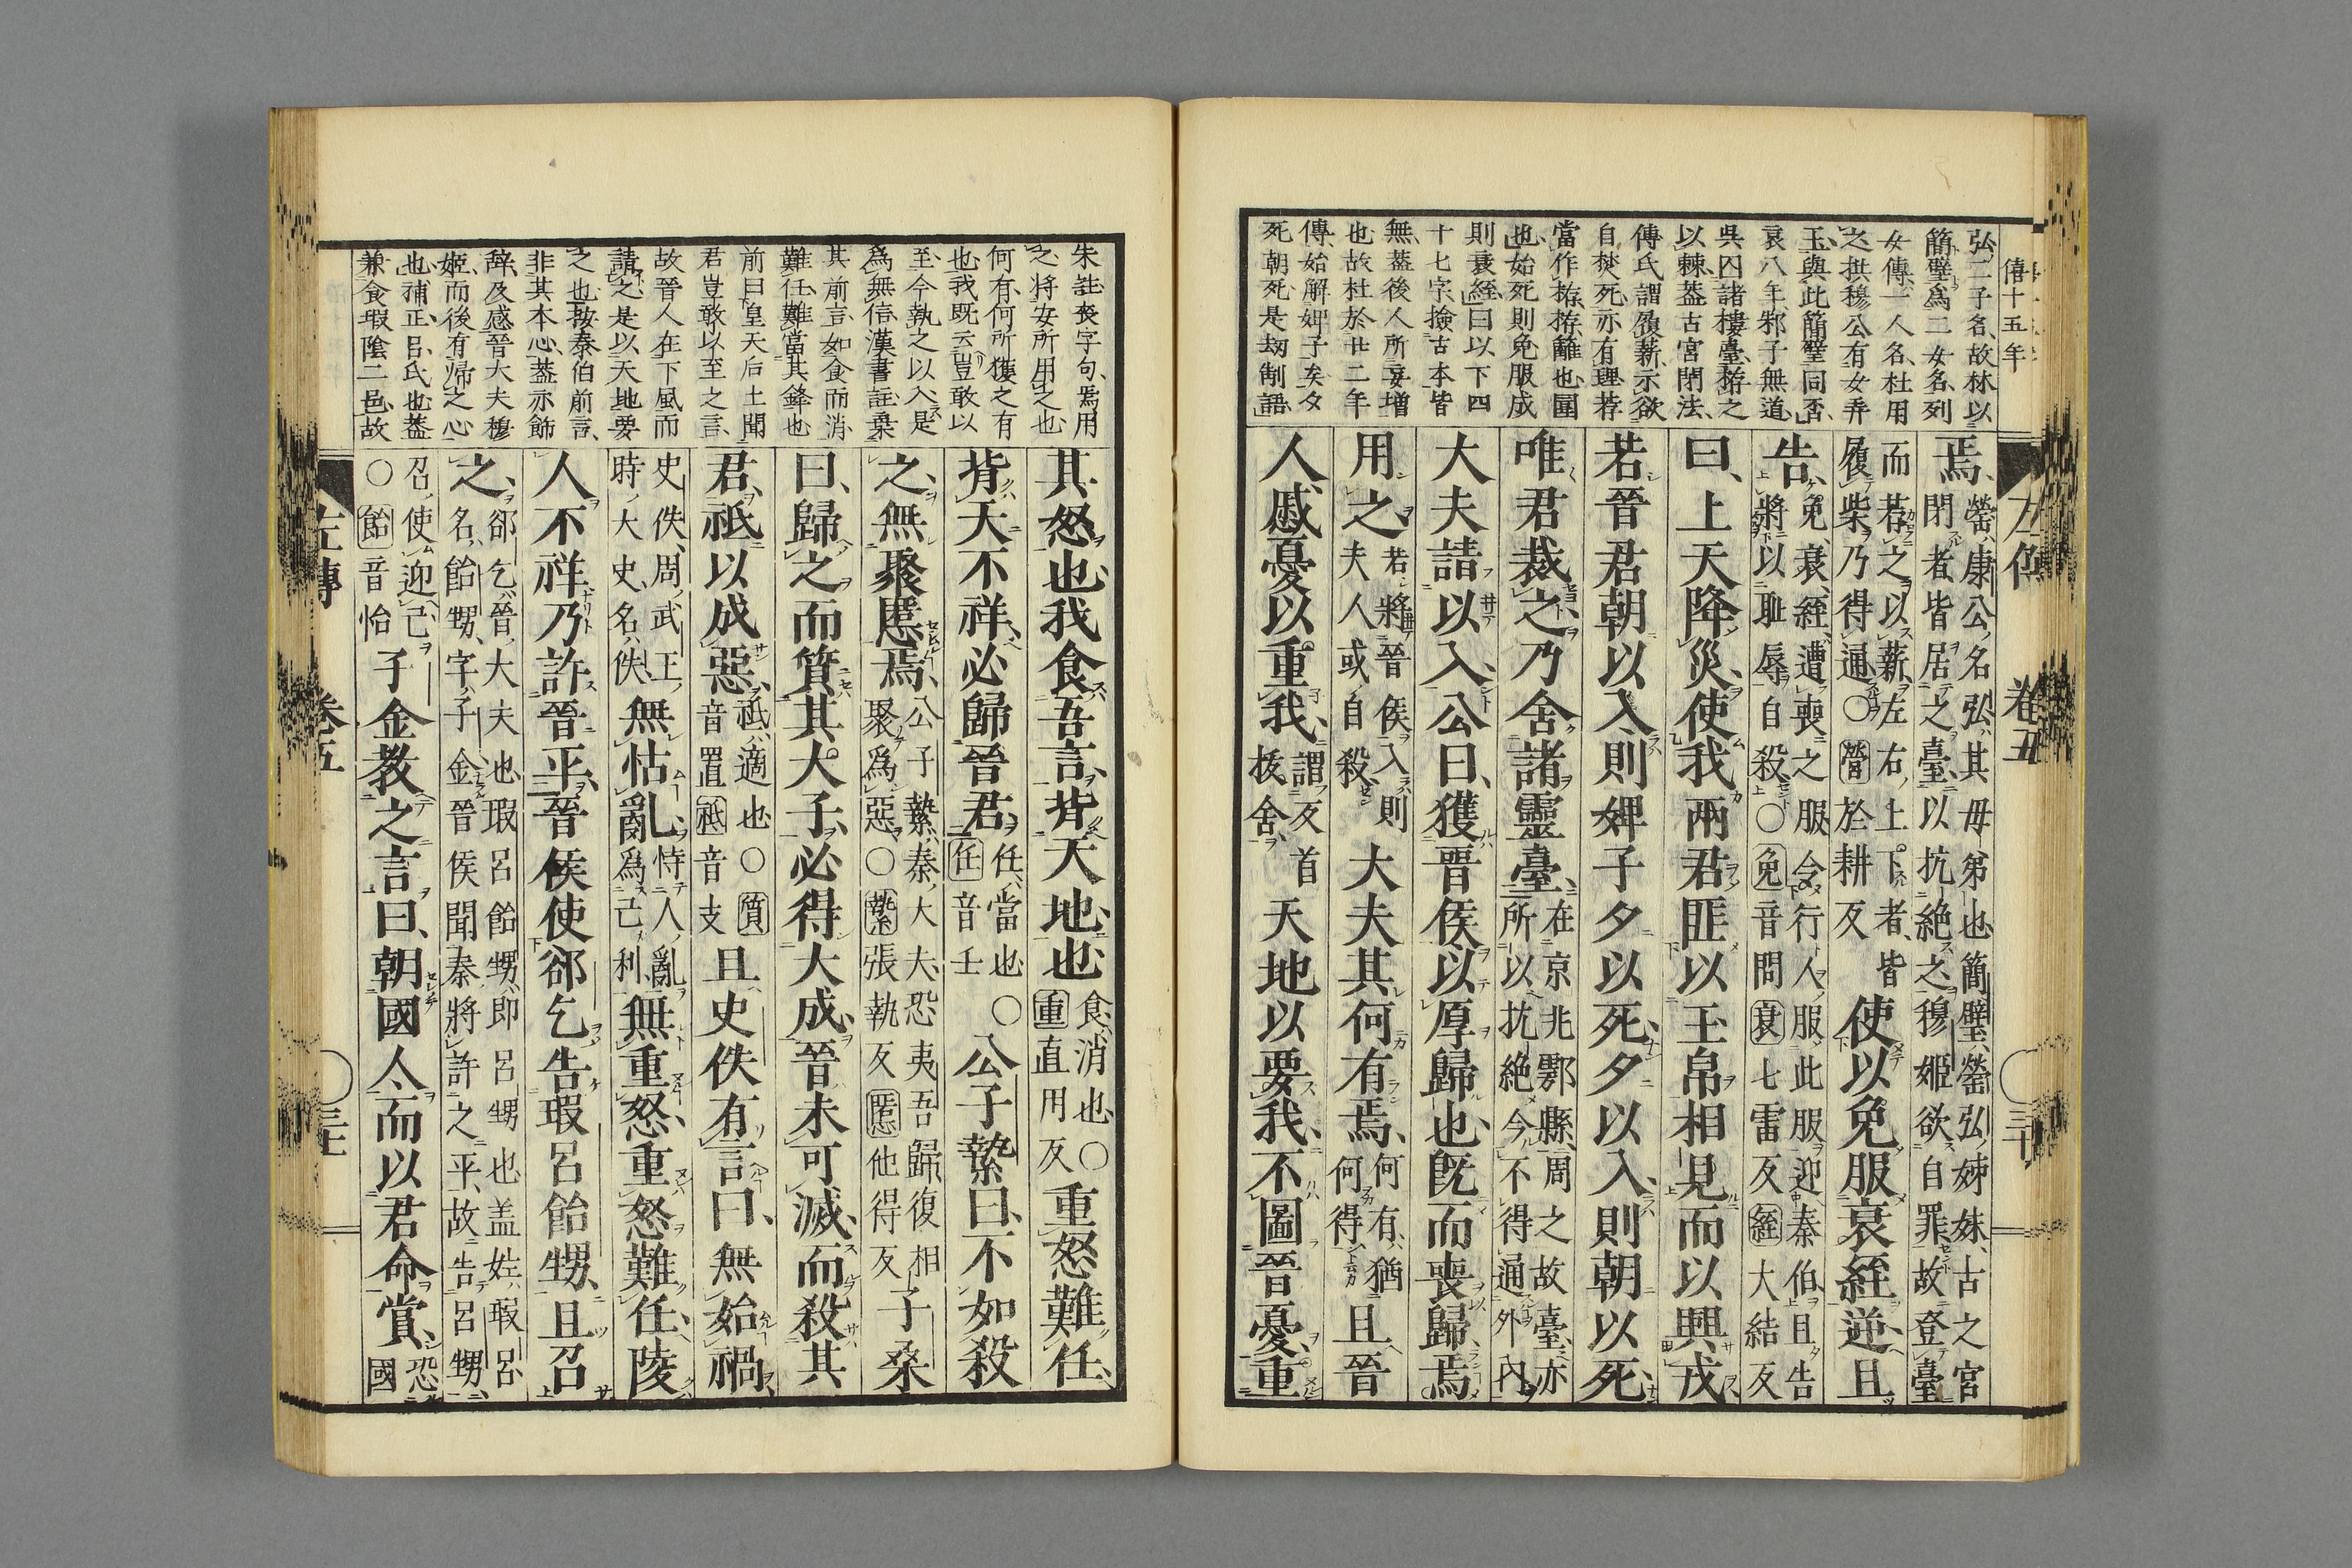 僖十五年
弘二子名故林以
簡璧爲二女名列
女傳一人名杜用
之拱穆公有女弄
玉與此簡璧同否
哀八年邾子無道
吳囚諸樓臺栫之
以棘蓋古宮閉法
傳氏謂履薪示欲
自焚死亦有理荐
當作栫栫籬也圍
也始死則免服成
則衰絰曰以下四
十七字撿古本皆
無蓋後人所妄増
也故杜於廿二年
傳始解婢子矣夕
死朝死是刼制語
左傳 卷五
焉、罃康公名弘其母弟也簡璧罃弘姊妹古之宮閉者皆居之臺以抗絕之穆姬欲自罪故登臺
而荐之以薪左右上下者皆履柴乃得通○罃於耕反使以免服衰絰逆且
告、免衰絰遭喪之服令行人服此服迎秦伯且告將以耻辱自殺○免音問衰七雷反絰大結反
曰、上天降災使我兩君匪以玉帛相見而以興戎
若晉君朝以入則婢子夕以死、夕以入則朝以死、
唯君裁之乃舍諸靈臺、在京兆鄠縣周之故臺亦所以抗絕今不得通外內
大夫請以入公曰、獲晉侯以厚歸也、旣而喪歸焉
用之若將晉侯入則夫人或自殺大夫其何有焉、何有猶何得且晉
人慼憂以重我、謂反首拔舍天地以要我、不圖晉憂重
朱註喪字句焉用
之將安所用之也
何有何所獲之有
也我既云豈敢以
至今執之以入是
爲無信漢書註桑
其前言如食而消
難任難當其鋒也
前曰皇天后土聞
君豈敢以至之言
故晉人在下風而
請之是以天地要
之也按秦伯前言
非其本心蓋亦飾
辭及感晉大夫穆
姬而後有歸之心
也補正呂氏也蓋
兼食瑕陰二邑故
其怒也我食吾言、背天地也食消也○重直用反重怒難任、
背天不祥必歸晉君任當也○任音壬公子縶曰、不如殺
之、無聚慝焉、公子縶秦大夫恐夷吾歸復相聚爲惡○縶張執反慝他得反子桑
曰、歸之而質其大子、必得大成、晉未可滅、而殺其
君、祇以成惡、祇適也○質音置祗音支且史佚有言曰、無始禍
史佚周武王時大史名佚無怙亂、恃人亂爲己利無重怒、重怒難任、陵
人不祥乃許晉平、晉侯使郤乞告瑕呂飴甥、且召
之、郤乞晉大夫也瑕呂飴甥即呂甥也蓋姓瑕呂名飴甥字子金晉侯聞秦將許之平故告呂甥
召使迎己○飴音怡子金教之言曰、朝國人、而以君命賞、恐國
左傳 卷五